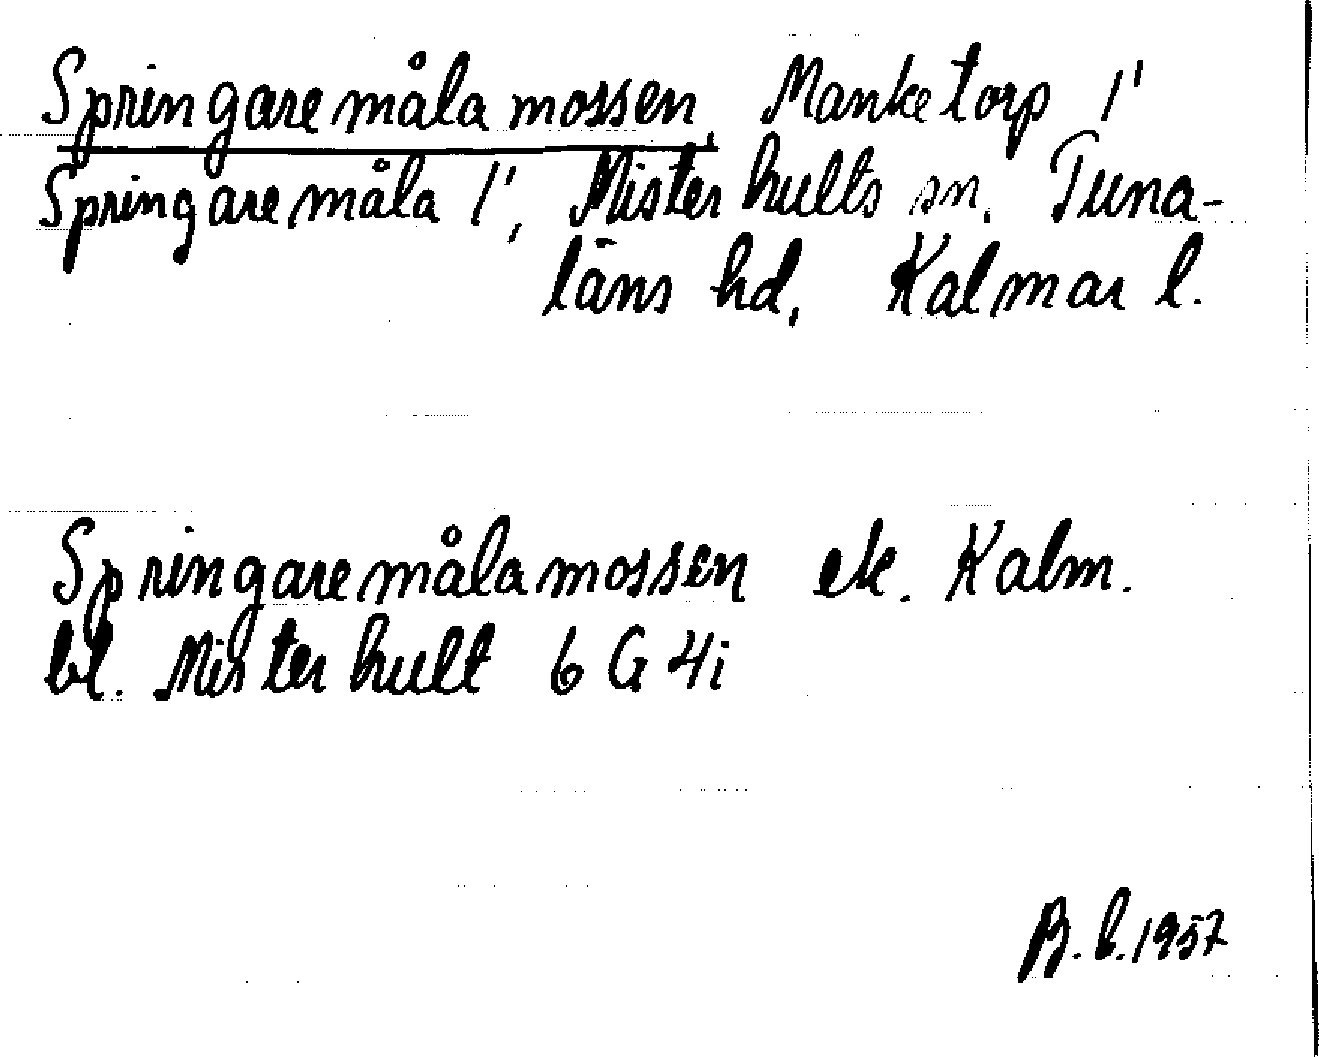 Springaremålamossen, Manketorp 1'
Springaremåla 1', Misterhults sn. Tuna-
läns hd, Kalmar l.
Springaremålamossen ek. Kalm.
bl. Misterhult 6 G 4i
B. b. 1957